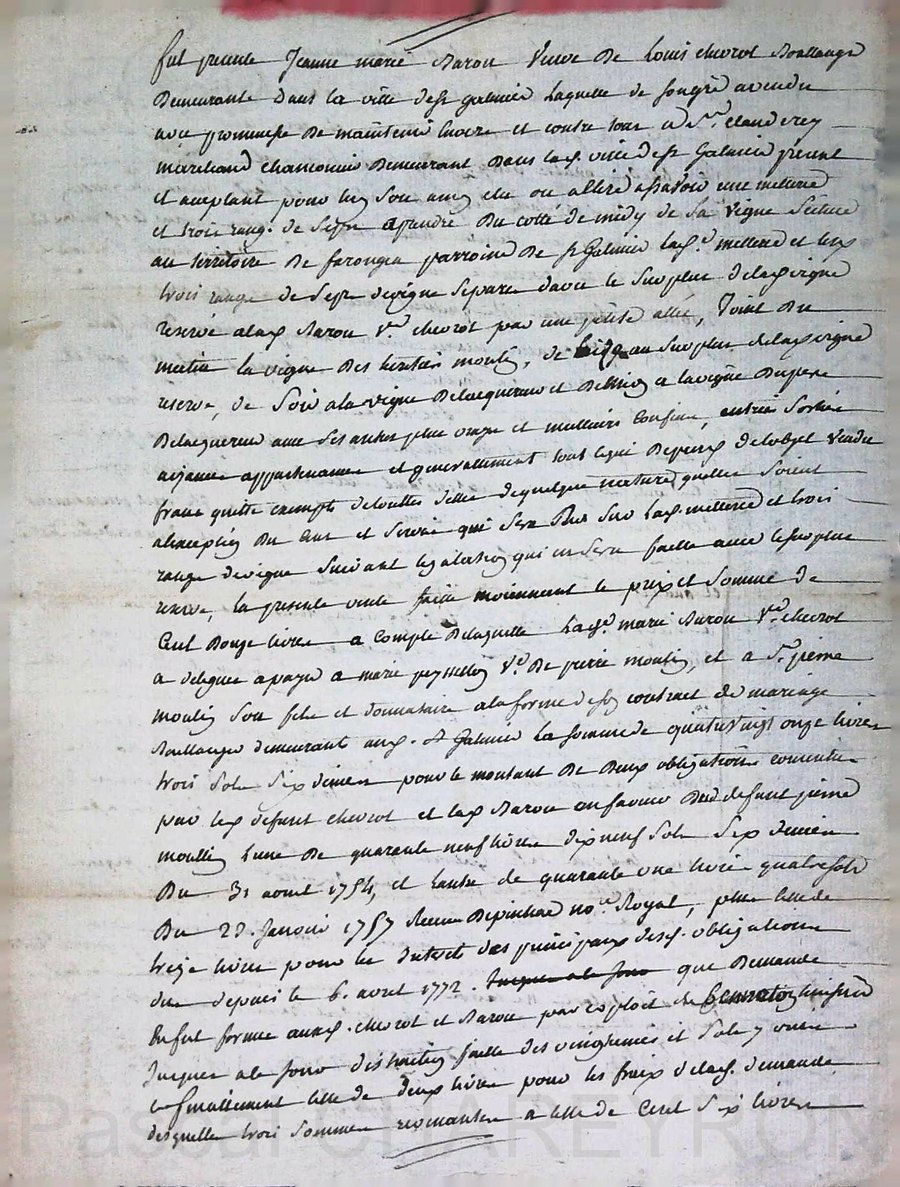 fut presente Jeanne marie Baron veuve De Louis chevrot Boullanger
Demeurante Dans la ville de st galmier Laquelle de son gré a vendu
avec promesse De maintenir Envers et contre tous a Sr. Claude rey
marchand chamoisier Demeurant Dans lad. ville de st Galmier present
et acceptant pour luy son amy elu ou a Elire assavoir une metteré
et trois rangs de Seps a prendre Du cotté de midy de Sa vigne Scituée
au territoire De farouges parroisse De st Galmier lad. metteré et les
trois rangs de Seps de vigne Separés d'avec le Surplus de lad. vigne
reservé a lad. Baron Ve. chevrot par une petite allée, Joint Du
matin la vigne Des heritiers moulin, de bize au Surplus de lad. vigne
reservé, de Soir a la vigne De et De a la vigne Du pere
De avec Ses autres plus vrays et meilleurs Confins, entrées Sorties
aizances appartenances et generallement tout ce qui Depend de l'objet vendu
franc quitte exempts de touttes dettes de quelque nature quelles Soient
a l'exception Du Cens et Servis qui Sera Deus Sur lad. metteré et trois
rangs de vigne Suivant legalation qui en Sera faitte avec le Surplus
reservé, la presente vente faitte moiennant le prix et Somme de
Cent Douze livres a Compte De laquelle lad. marie Baron Ve. chevrot
a delegué a payer a marie peysselon Ve. De pierre moulin, et a Sr. pierre
moulin Son fils et donnataire a la forme de son contract de mariage
Boullanger demeurant aud. St Galmier La Somme de quatrevingt onze livres
trois Sols Six deniers pour le montant De Deux obligations consenties
par led. defunt chevrot et lad. Baron en faveur Dud. defunt pierre
moulin Lune De quarante neuf livres dix neuf Sols Six deniers
Du 31 aout 1754, et l'autre de quarante une livre quatre sols
Du 23. Janvier 1757 Reçues no.re Royal, plus celle de
treize livres pour les Interets des principaux desd. obligations
dus depuis le 6. avril 1772. Jusques a ce Jour que Demande
En fut formée auxd. chevrot et Baron par exploit de huissier
Jusques a ce Jour distraction faitte des vingtiemes et Sols y
et finallement celle de deux livres pour les frais de lad. demande
desquelles trois Sommes revenantes a celle de Cent Six livres
Pascal CHAREYRON